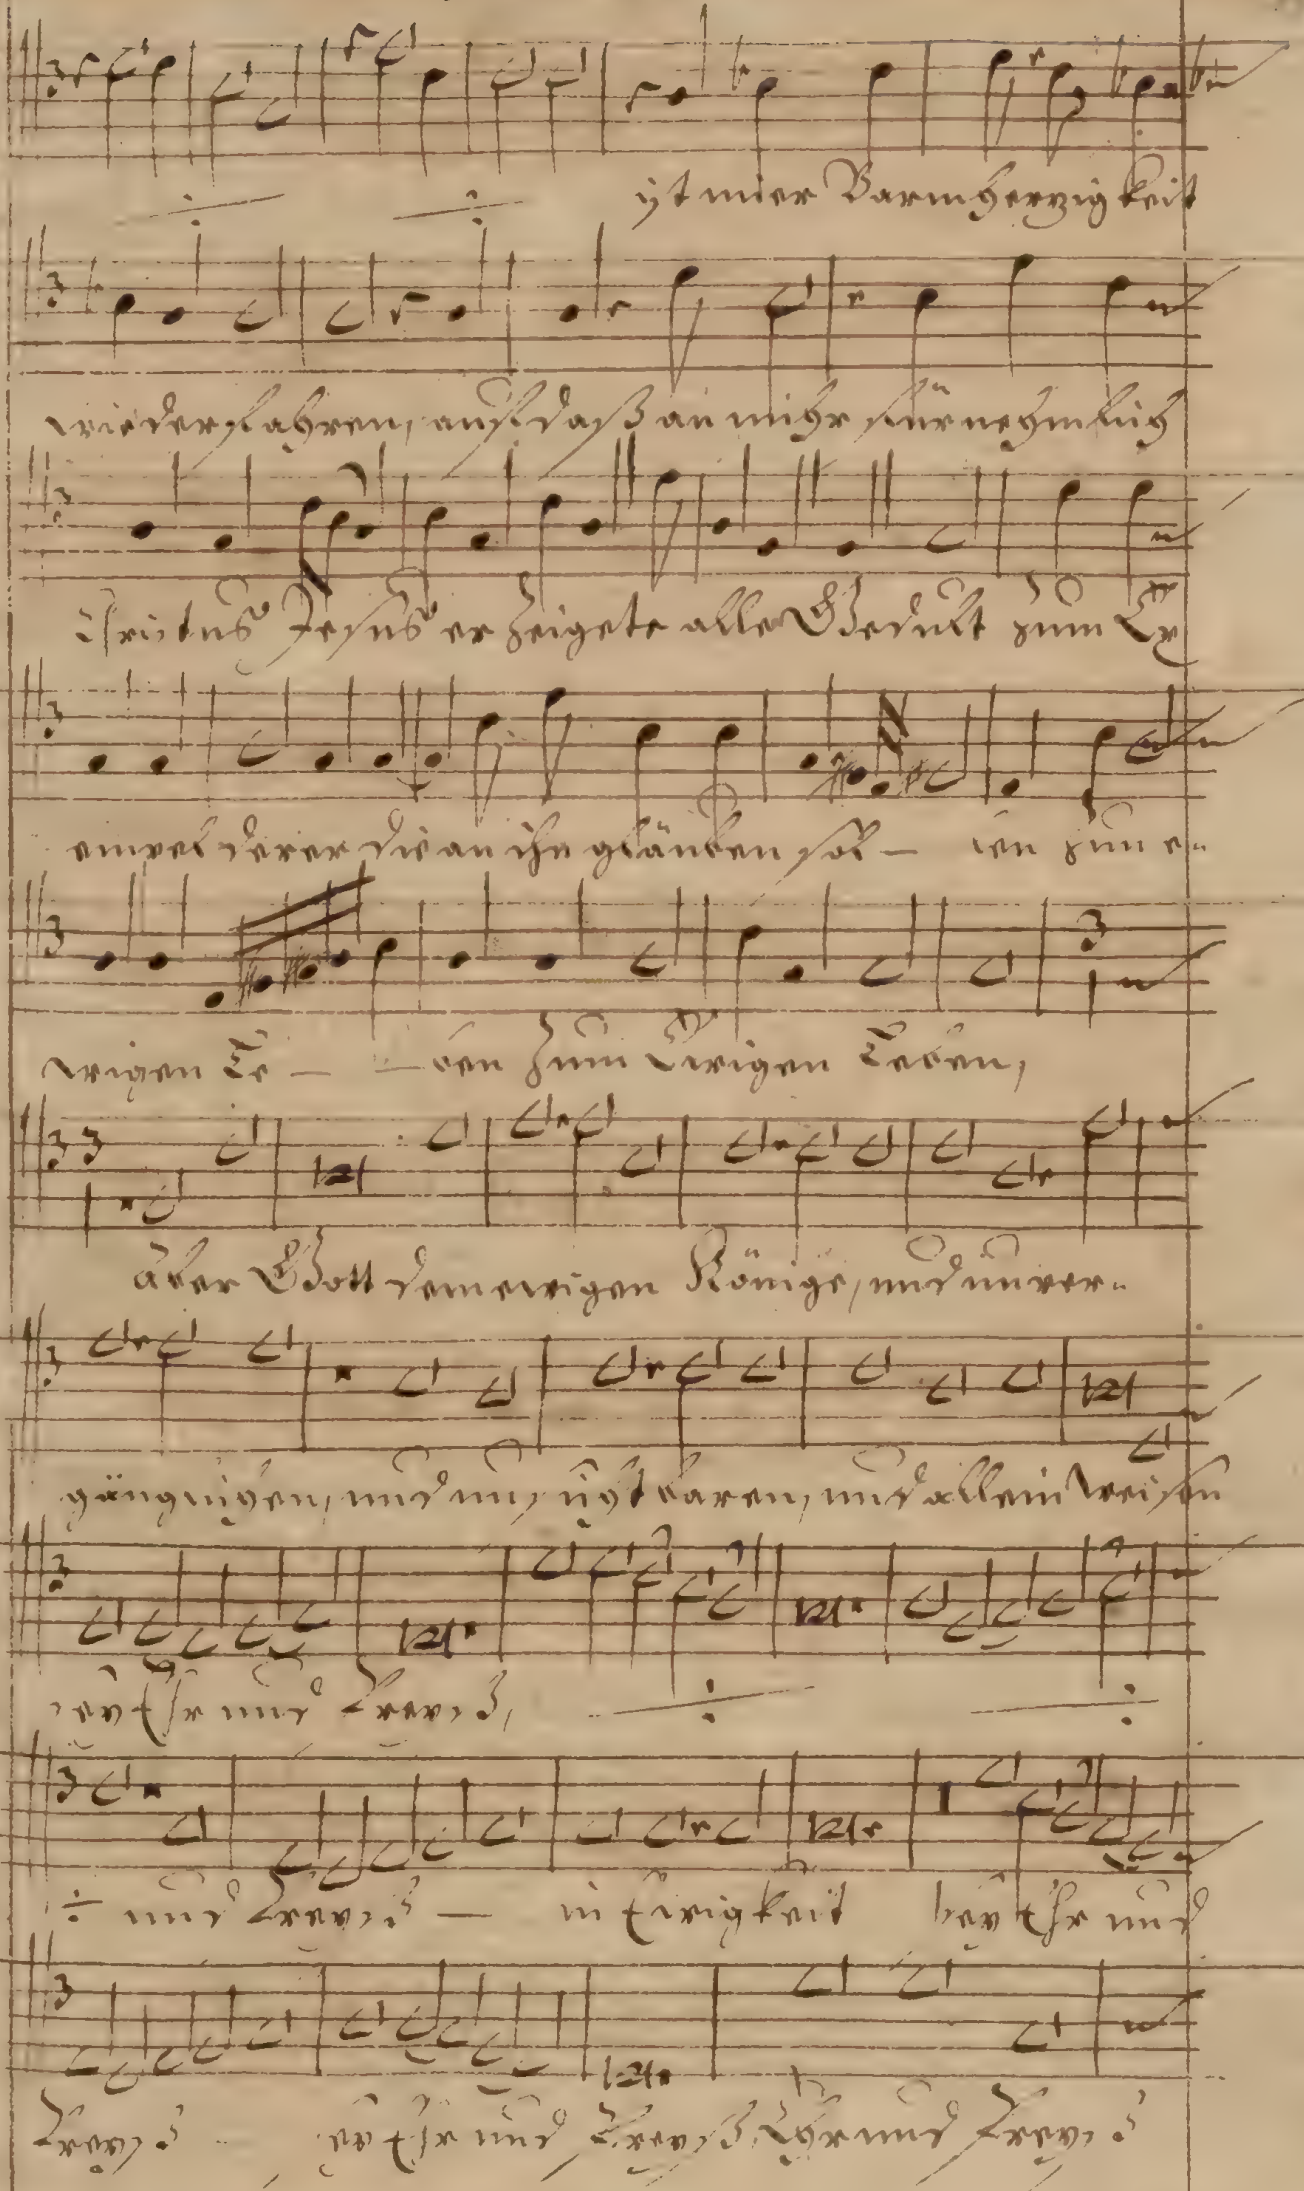 ist mier Barmherzigkeit
wiederfahren, auf daß an mihr fürnehmlich
Christus Jesus erzeigete alle Gedult zum Ex
empel derer die an ihn gläuben sol — len zum e=
wigen Le — — ben zum Ewigen Leben,
Aber Gott dem ewigen Könige, und unver=
gänglichen, und unsichtbaren, und allein Weisen
sey Ehr und Preyß,
und Preyß — in Ewigkeit sey Ehr und
Preyß sey Ehr und Preyß, Ehr und Preyß